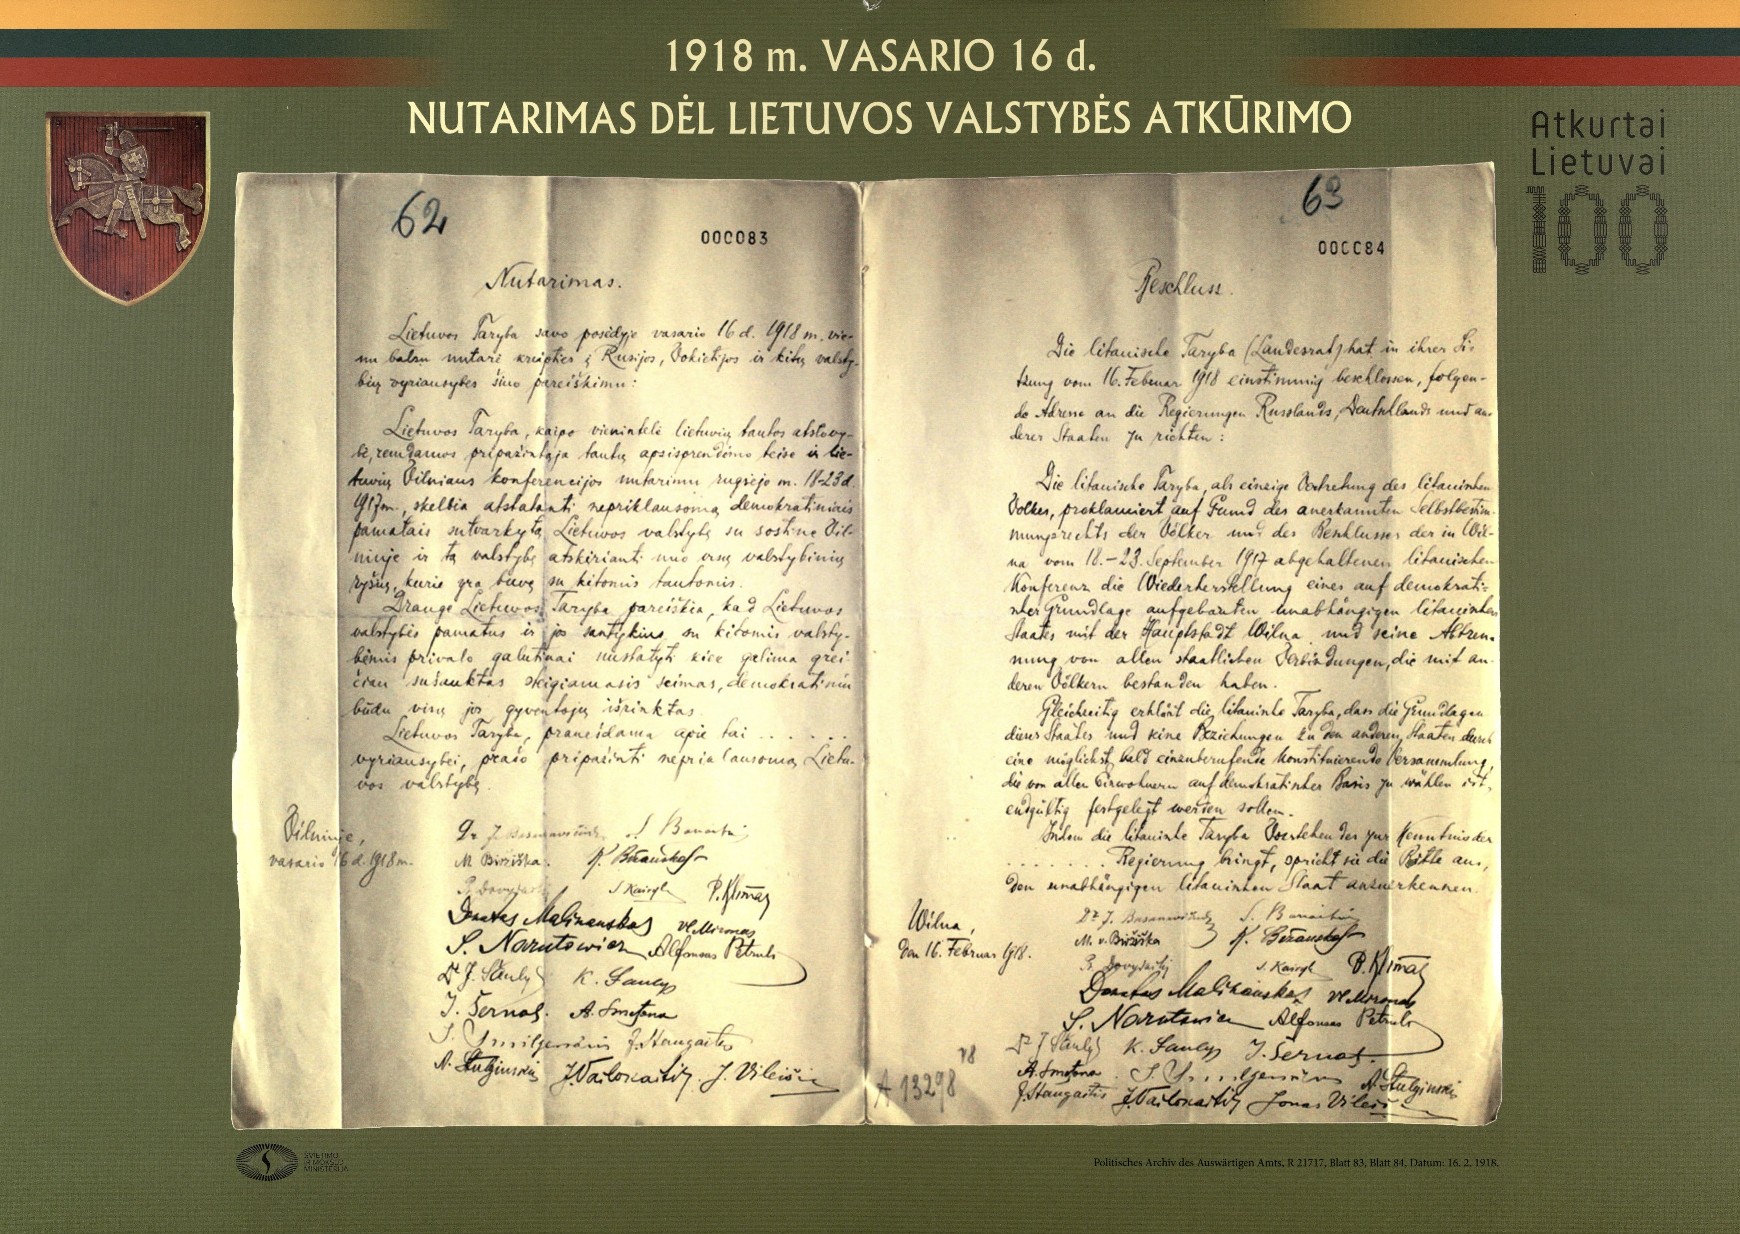 1918 m. VASARIO 16 d.
NUTARIMAS DĖL LIETUVOS VALSTYBĖS ATKŪRIMO
Atkurtai
Lietuvai
100
62
000083
Nutarimas.
Lietuvos Taryba savo posėdyje vasario 16 d. 1918 m. vie-
nu balsu nutarė kreipties į Rusijos, Vokietijos ir kitų valsty-
bių vyriausybes šiuo pareiškimu:
Lietuvos Taryba, kaipo vienintelė lietuvių tautos atstovy-
bė, remdamos pripažintąja tautų apsisprendimo teise ir lie-
tuvių Vilniaus konferencijos nutarimu rugsėjo m. 18-23 d.
1917 m., skelbia atstatanti nepriklausomą demokratiniais
pamatais sutvarkytą Lietuvos valstybę su sostine Vil-
niuje ir tą valstybę atskirianti nuo visų valstybinių
ryšių, kurie yra buvę su kitomis tautomis.
Drauge Lietuvos Taryba pareiškia, kad Lietuvos
valstybės pamatus ir jos santykius su kitomis valsty-
bėmis privalo galutinai nustatyti kiek galima grei-
čiau sušauktas steigiamasis seimas, demokratiniu
būdu visų jos gyventojų išrinktas.
Lietuvos Taryba, pranešdama apie tai . . . . . .
vyriausybei, prašo pripažinti nepriklausomą Lietu-
vos valstybę.
Vilniuje,
vasario 16 d. 1918 m.
Dr J. Basanavičius S. Banaitis
M. Biržiška. K. Bizauskas
P. Dovydaitis S. Kairys P. Klimas
Donatas Malinauskas Vl. Mironas
S. Narutowicz Alfonsas Petrulis
Dr J. Šaulys K. Šaulys
J. Šernas. A. Smetona
J. Smilgevičius J. Staugaitis
A. Stulginskis J. Vailokaitis J. Vileišis
63
000084
Beschluss.
Die litauische Taryba (Landesrat) hat in ihrer Si-
tzung vom 16. Februar 1918 einstimmig beschlossen, folgen-
de Adresse an die Regierungen Russlands, Deutschlands und an-
derer Staaten zu richten:
Die litauische Taryba, als einzige Vertretung des litauischen
Volkes, proklamiert auf Grund des anerkannten Selbstbestim-
mungsrechts der Völker und des Beschlusses der in Wil-
na vom 18.-23. September 1917 abgehaltenen litauischen
Konferenz die Wiederherstellung eines auf demokrati-
scher Grundlage aufgebauten unabhängigen litauischen
Staates mit der Hauptstadt Wilna und seine Abtren-
nung von allen staatlichen Verbindungen, die mit an-
deren Völkern bestanden haben.
Gleichzeitig erklärt die litauische Taryba, dass die Grundlagen
dieses Staates und seine Beziehungen zu den anderen Staaten durch
eine möglichst bald einzuberufende konstituierende Versammlung,
die von allen Einwohnern auf demokratischer Basis zu wählen ist,
endgültig festgelegt werden sollen.
Indem die litauische Taryba Vorstehendes zur Kenntnis der
. . . . . . . . Regierung bringt, spricht sie die Bitte aus,
den unabhängigen litauischen Staat anzuerkennen.
Wilna,
den 16. Februar 1918.
Dr J. Basanavičius S. Banaitis
M. v. Biržiška K. Bizauskas
P. Dovydaitis S. Kairys P. Klimas
Donatas Malinauskas Vl. Mironas
S. Narutowicz Alfonsas Petrulis
Dr J. Šaulys K. Šaulys J. Šernas.
A. Smetona J. Smilgevičius A. Stulginskis
J. Staugaitis J. Vailokaitis Jonas Vileišis
18
A 13298
ŠVIETIMO
IR MOKSLO
MINISTERIJA
Politisches Archiv des Auswärtigen Amts, R 21717, Blatt 83, Blatt 84, Datum: 16. 2. 1918.